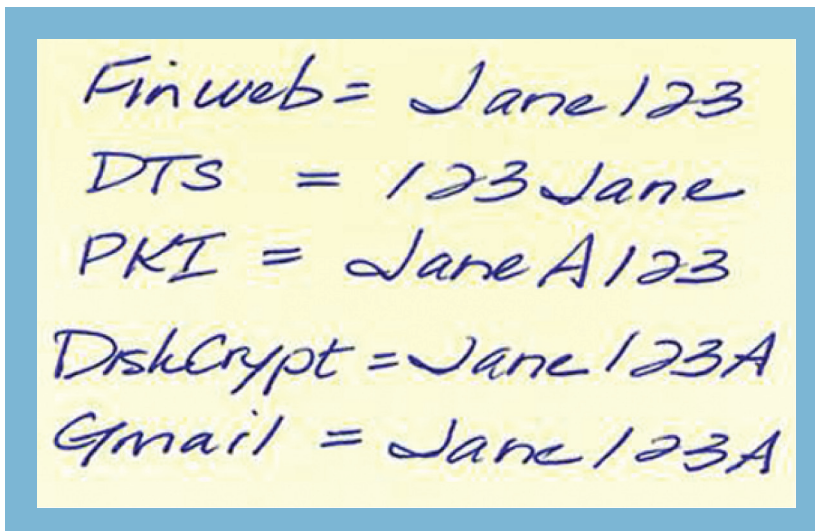 Finweb = Jane123
DTS = 123Jane
PKI = JaneA123
DiskCrypt = Jane123A
Gmail = Jane123A